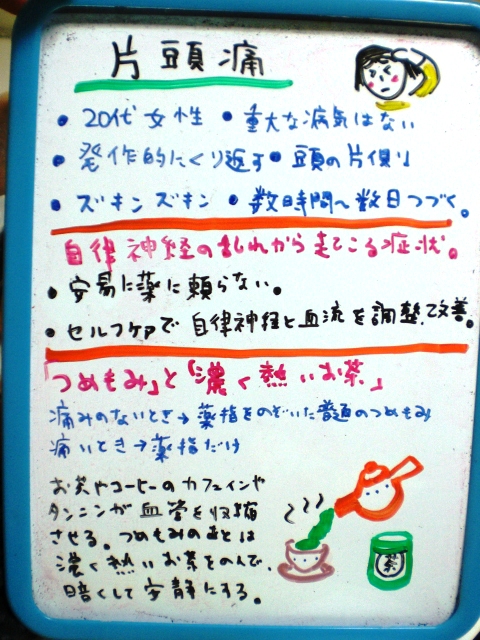 片頭痛
・20代女性 ・重大な病気はない
・発作的にくり返す・頭の片側
・ズキンズキン ・数時間〜数日つづく。
自律神経の乱れから起こる症状。
・安易に薬に頼らない。
・セルフケアで自律神経と血流を調整、改善。
「つめもみ」と「濃く熱いお茶」
痛みのないとき→薬指をのぞいた普通のつめもみ
痛いとき→薬指だけ
お茶やコーヒーのカフェインや
タンニンが血管を収縮
させる。つめもみのあとは
濃く熱いお茶をのんで、
暗くして安静にする。
茶